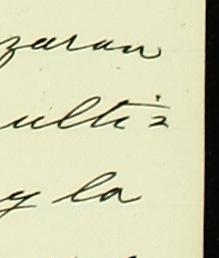 zaran
ulti=
y la